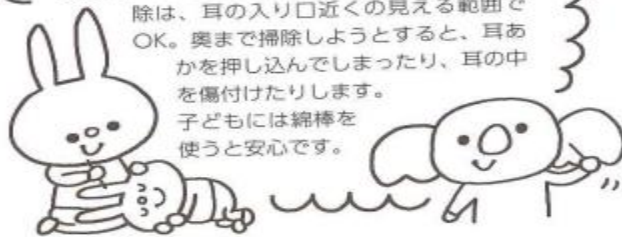 除は、耳の入り口近くの見える範囲で
OK。奥まで掃除しようとすると、耳あ
かを押し込んでしまったり、耳の中
を傷付けたりします。
子どもには綿棒を
使うと安心です。